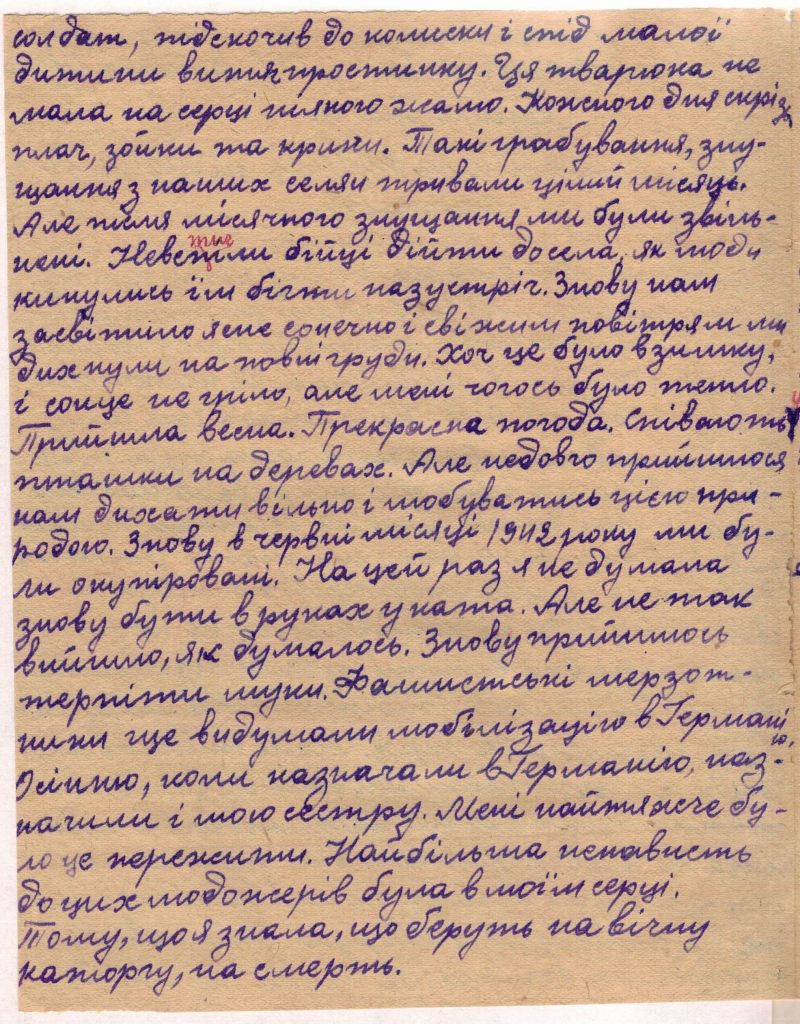 солдат, підскочив до колиски і спід малої
дитини витяг простинку. Ця тварюка не
мала на серці ніякого жалю. Кожного дня скрізь
плач, зойки та крики. Такі грабування, зну-
щання з наших селян тривали цілий місяць.
Але після місячного знущання ми були звіль-
нені. Невстигли бійці дійти до села, як люди
кинулись їм бігти назустріч. Знову нам
засвітило ясне сонечно і свіжим повітрям ми
дихнули на повні груди. Хоч це було взимку,
і сонце не гріло, але мені чогось було тепло.
Прийшла весна. Прекрасна погода. Співають
пташки на деревах. Але недовго прийшлося
нам дихати вільно і любуватись цією при-
родою. Знову в червні місяці 1942 року ми бу-
ли окупіровані. На цей раз я не думала
знову бути в руках у ката. Але не так
вийшло, як думалось. Знову прийшлось
терпіти муки. Фашистські мерзот-
ники ще видумали мобілізацію в Германію.
Осінню, коли назначали в Германію, наз-
начили і мою сестру. Мені найтяжче бу-
ло це пережити. Найбільша ненависть
до цих людожерів була в моїм серці.
Тому, що я знала, що беруть на вічну
каторгу, на смерть.